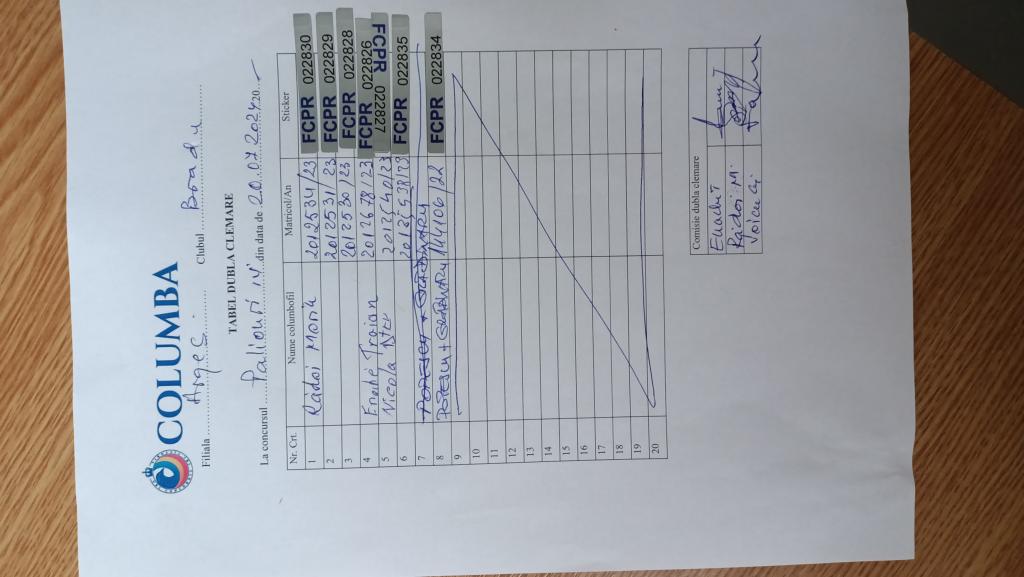 COLUMBA
Filiala Argeș Clubul Bradu
TABEL DUBLA CLEMARE
La concursul Paliouri IV din data de 20.07.2024
Nr. Crt. Nume columbofil Matricol/An Sticker
1 Rădoi Marin 2012534/23 FCPR 022830
2 2012531/23 FCPR 022829
3 2012530/23 FCPR 022828
4 Enache Traian 2012678/23 FCPR 022826
5 Nicola 2012540/23 FCPR 022827
6 2012538/23 FCPR 022835
7 Popescu +
8 Popescu + 144106/22 FCPR 022834
9
10
11
12
13
14
15
16
17
18
19
20
Comisie dubla clemare
Enache T
Rădoi M.
Voicu G.